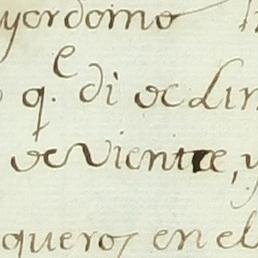 yordomo
q.e di de Lin
de Viente, y
queros en el